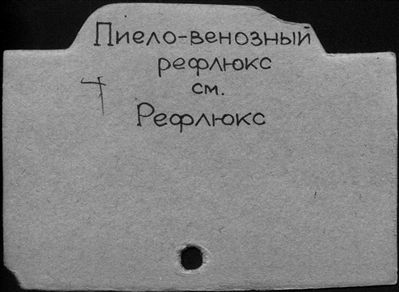 Пиело-венозный
рефлюкс
см.
Рефлюкс